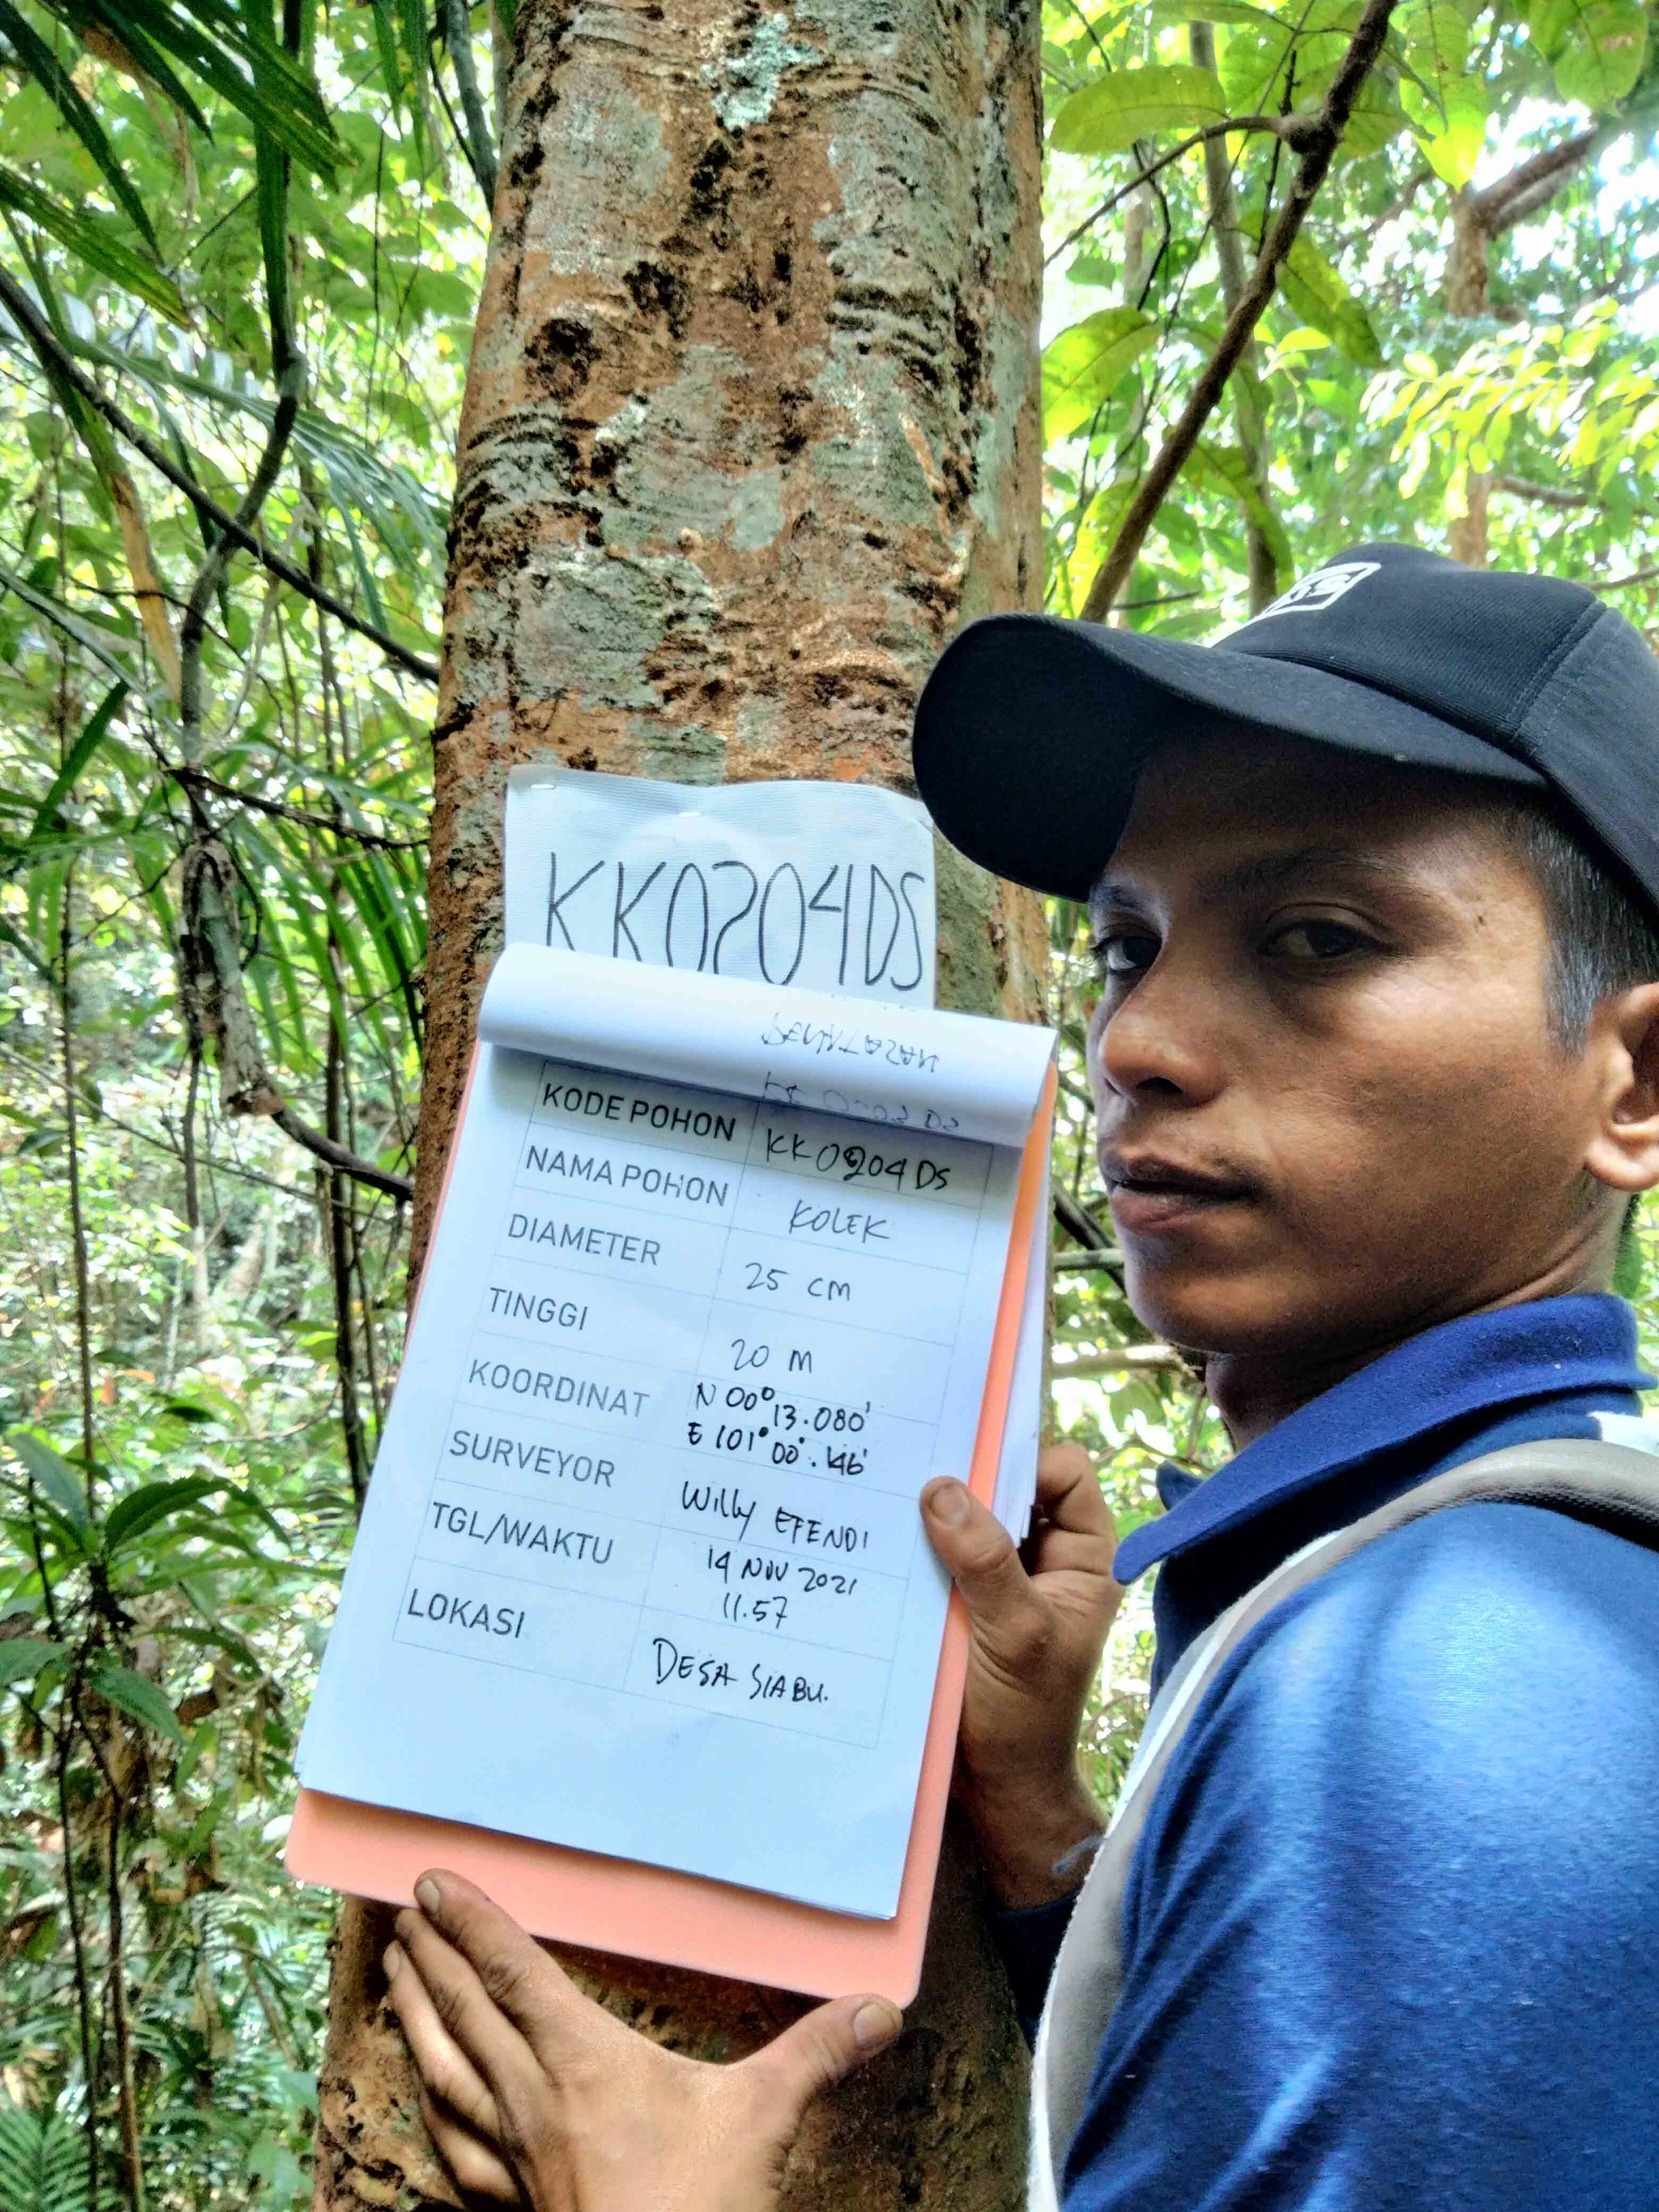 KK0204DS
KODE POHON KK0204DS
NAMA POHON KOLEK
DIAMETER 25 CM
TINGGI 20 M
KOORDINAT N 00° 13.080'
E 101° 00'.146'
SURVEYOR Willy EFENDI
TGL/WAKTU 14 NOV 2021
11.57
LOKASI DESA SIABU.